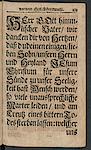 HErr GOtt himm-
lischer Vater/ wir
dancken dir von Hertzen/
daß du deinen einigen lie-
ben Sohn/ unsern Herrn
und Heyland JEsum
Christum für unser
Sünde zu unser Seelig-
keit hast Mensch werden/
so viele unaussprechliche
Marter leiden/ und am
Creutz eines bittern To-
des sterben lassen: welcher
uns